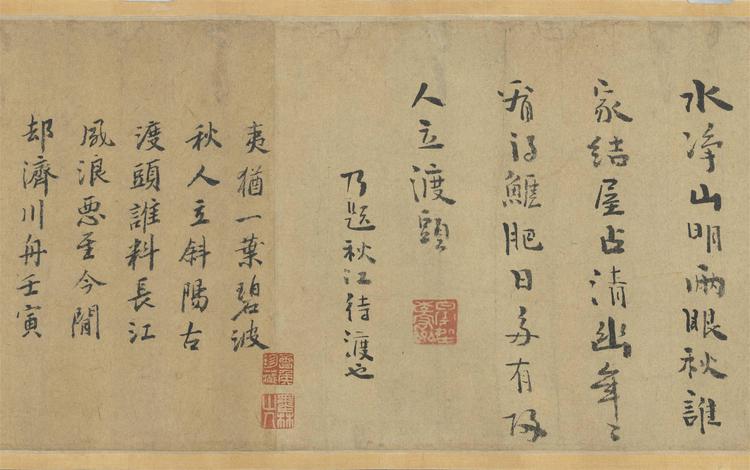 水淨山明兩眼秋誰
家結屋占清幽年〻
看得鱸肥日每有歸
人立渡頭
乃題秋江待渡也
夷猶一葉碧波
秋人立斜陽古
渡頭誰料長江
風浪惡至今閒
却濟川舟壬寅
墨林山人